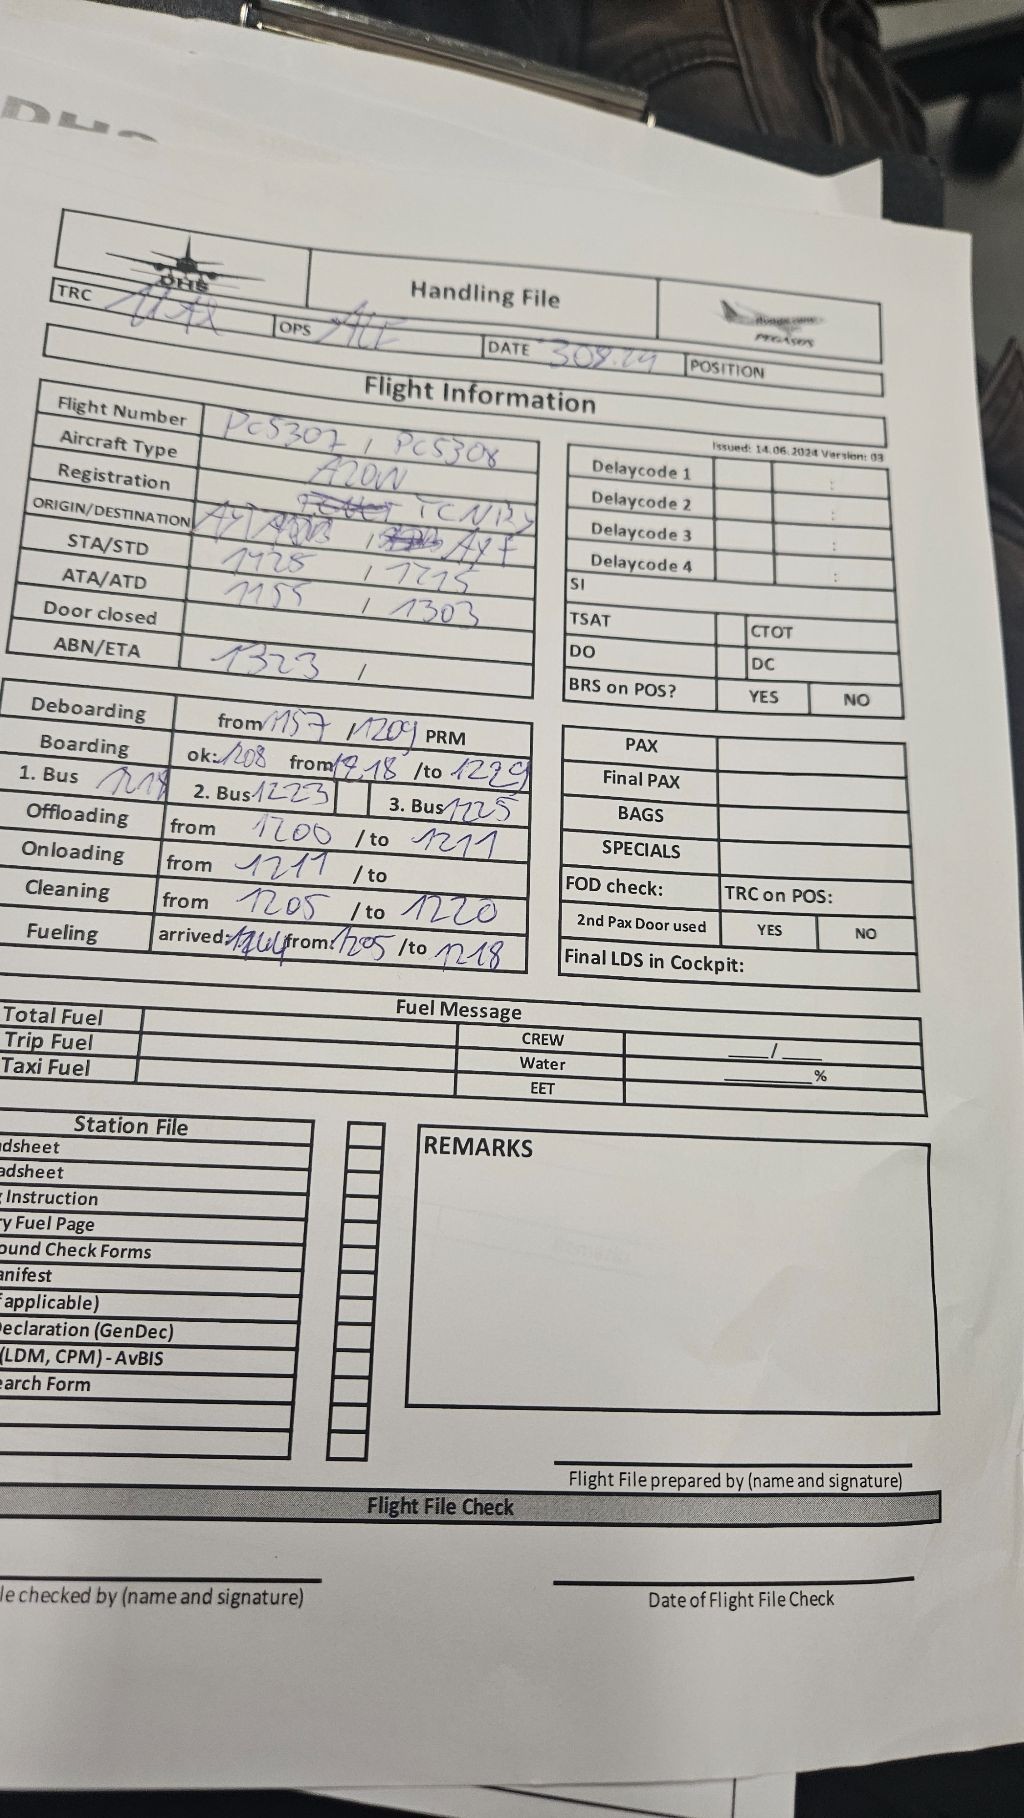 DHS
DHS
Handling File
PEGASUS
TRC
OPS
DATE 308.24
POSITION
Flight Information
Issued: 14.06.2024 Version: 03
Flight Number PC5307 / PC5308
Aircraft Type A20N
Registration TCNBY
ORIGIN/DESTINATION AYT / AYT
STA/STD 1125 / 1215
ATA/ATD 1155 / 1303
Door closed
ABN/ETA 1323 /
Delaycode 1 :
Delaycode 2 :
Delaycode 3 :
Delaycode 4 :
SI
TSAT CTOT
DO DC
BRS on POS? YES NO
Deboarding from 1157 / 1209 PRM
Boarding ok: 1208 from 1218 /to 1229
1. Bus 1218 2. Bus 1223 3. Bus 1225
Offloading from 1200 / to 1211
Onloading from 1211 / to
Cleaning from 1205 / to 1220
Fueling arrived: from: 1205 /to 1218
PAX
Final PAX
BAGS
SPECIALS
FOD check: TRC on POS:
2nd Pax Door used YES NO
Final LDS in Cockpit:
Fuel Message
Total Fuel
Trip Fuel
Taxi Fuel
CREW ___/___
Water ________%
EET
Station File
adsheet
adsheet
Instruction
y Fuel Page
ound Check Forms
anifest
applicable)
eclaration (GenDec)
(LDM, CPM) - AvBIS
earch Form
REMARKS
Flight File prepared by (name and signature)
Flight File Check
le checked by (name and signature)
Date of Flight File Check